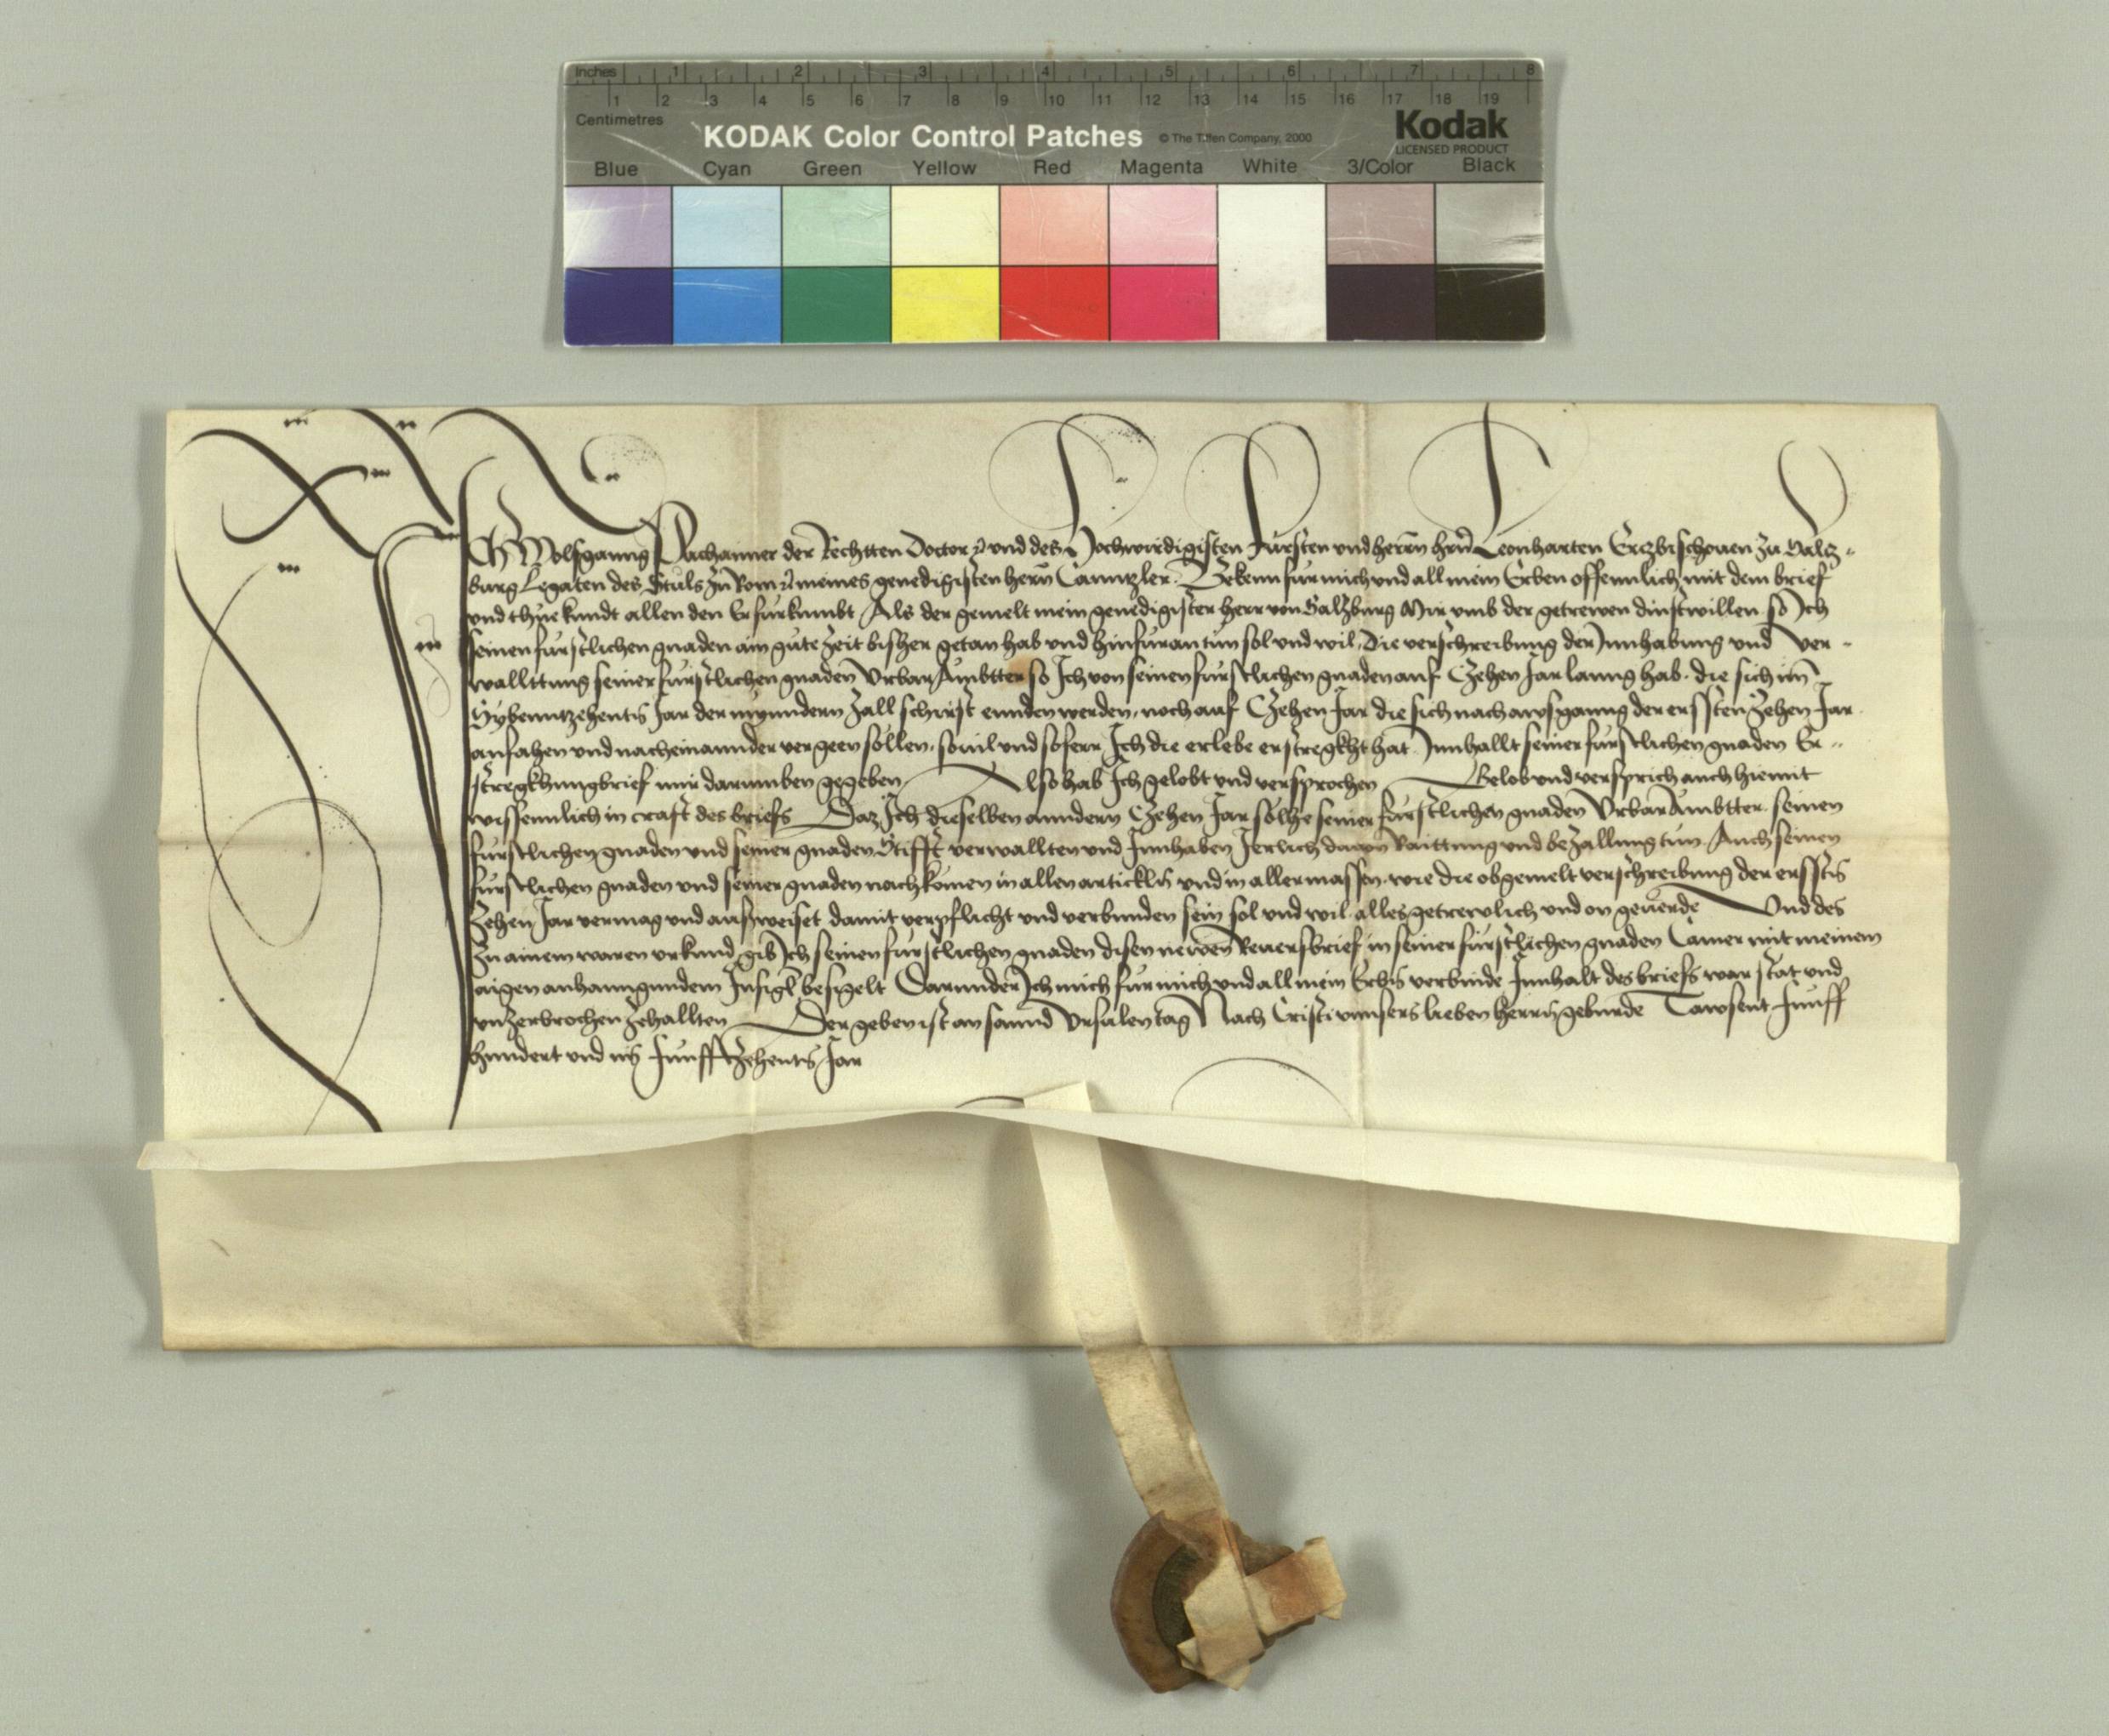 Inches 1 2 3 4 5 6 7 8
1 2 3 4 5 6 7 8 9 10 11 12 13 14 15 16 17 18 19
Centimetres
KODAK Color Control Patches © The Tiffen Company, 2000 Kodak
LICENSED PRODUCT
Blue Cyan Green Yellow Red Magenta White 3/Color Black
Ich Wolfganng Pachaimer der Rechtten Doctor und des Hochwirdigisten Fürsten und herrn hrn Leonharten Ertzbischouen zu Saltz-
burg Legaten des Stuls zu Rom meines genedigisten hern Canntzler. Bekenn für mich und all mein Erben offennlich mit dem brief
und thue kundt allen den Er fürkumbt Als der gemelt mein genedigister herr von Saltzburg Mir vmb der getrewen dinst willen so Ich
seinen fürstlichen gnaden ain gute zeit bisher getan hab und hinfüran tun sol und wil, Die verschreibung der Innhabung und Ver-
wallttung seiner fürstlichen gnaden Vrbar Ambtter so Ich von seinen fürstlichen gnaden auf Zehen Jar lanng hab. die sich im
Sybenntzehentn Jar der mynndern zall schirist ennden werden, noch auf Zehen Jar die sich nach awsganng der erssten zehen Jar
anfahen und nacheinannder vergeen sollen, souil und soferr Ich die erlebe erstregkht hat Innhallt seiner fürstlichen gnaden Er-
stregkhungbrief mir darumben gegeben Also hab Ich gelobt und versprochen Gelob und versprich auch hiemit
wissennlich in craft des briefs Daz Ich dieselben anndern Zehen Jar solhe seiner fürstlichen gnaden Vrbar Ambtter seinen
fürstlichen gnaden und seiner gnaden Stifft verwallten und Innhaben Jerlich dauon Raittung und bezallung tun. Auch seinen
fürstlichen gnaden und seiner gnaden nachkomen in allen articklen und in aller massen, wie die obgemelt verschreibung der erssten
Zehen Jar vermag und aufweiset damit verpflicht und verbunden sein sol und wil alles getrewlich und on geuerde Und des
Zu ainem waren vrkund gib Ich seinen fürstlichen gnaden disen newen Reuersbrief in seiner fürstlichen gnaden Camer mit meinem
aigen anhanngundem Insigl besigelt Darunder Ich mich für mich und all mein Erben verbinde Innhalt des briefs war stat und
vnzerbrochen zehallten Der geben ist an sannd Vrsulen tag Nach Cristi vnnsers lieben herrn geburde Tawsent Funff
hundert und im Funfftzehentn Jar